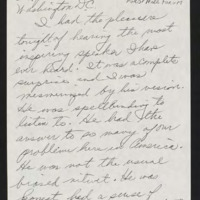 Washington D.C.
I had the pleasure
tonight of hearing the most
inspiring speaker I have
ever heard. It was a complete
surprise and I was
mesmerized by his
He was spellbinding to
listen to. He had the
answer to so many of our
problems here in America.
He was not the usual
biased nitwit. He was
honest, had a sense of